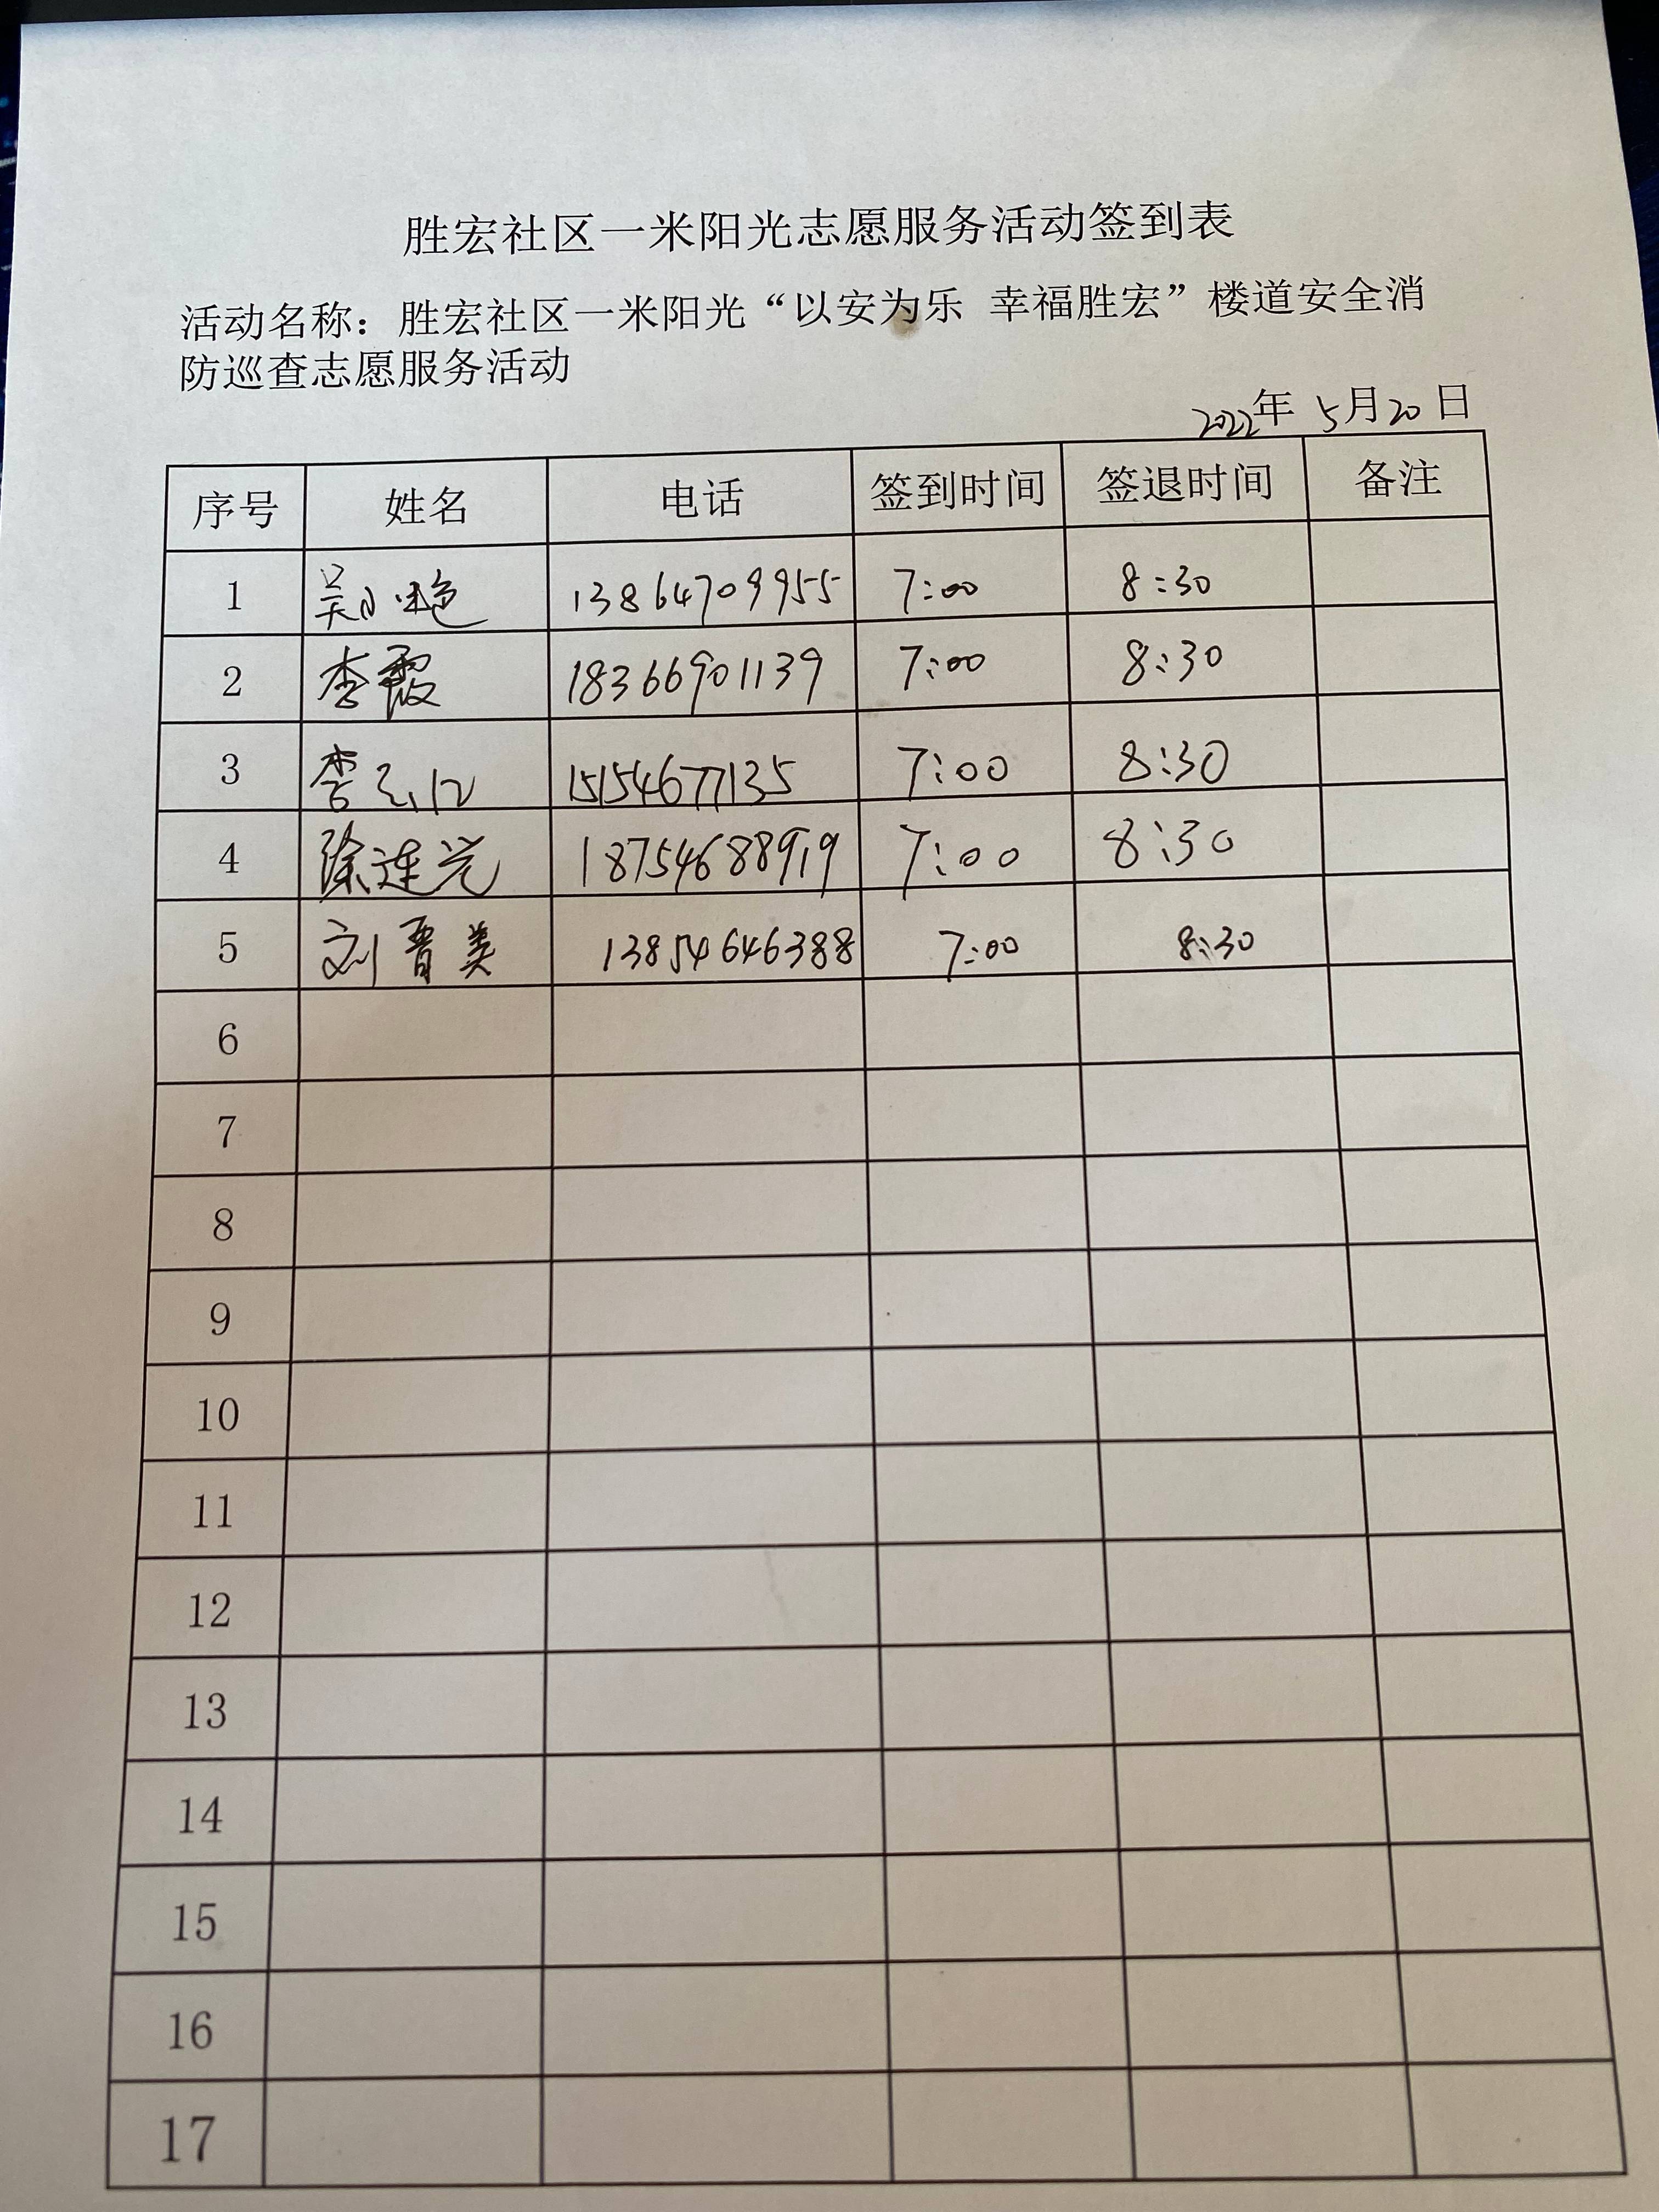 胜宏社区一米阳光志愿服务活动签到表
活动名称：胜宏社区一米阳光“以安为乐 幸福胜宏”楼道安全消
防巡查志愿服务活动
2022年 5月20日
序号 姓名 电话 签到时间 签退时间 备注
1 吴小艳 13864709955 7:00 8:30
2 李霞 18366901139 7:00 8:30
3 李 15154677135 7:00 8:30
4 徐连光 18754688919 7:00 8:30
5 刘晋美 13854646388 7:00 8:30
6
7
8
9
10
11
12
13
14
15
16
17